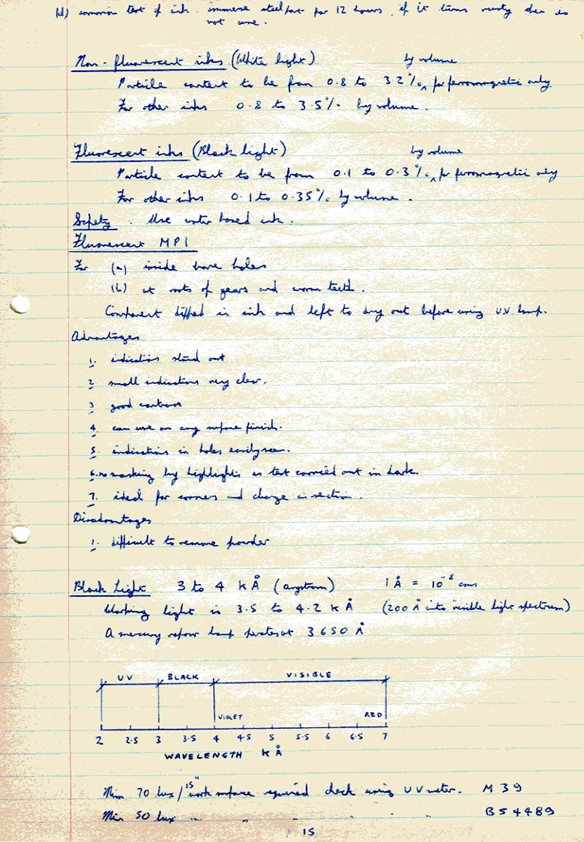 (d) common test of ink. immerse steel part for 12 hours, if it turns rusty then do
not use.
Non-fluorescent inks (White light) by volume
Particle content to be from 0.8 to 3.2%, for ferromagnetic only.
For other inks 0.8 to 3.5% by volume.
Fluorescent inks (Black light) by volume
Particle content to be from 0.1 to 0.3%, for ferromagnetic only
For other inks 0.1 to 0.35% by volume.
Safety. Use water based ink.
Fluorescent MPI
For (a) inside bore holes
(b) at roots of gears and worm teeth.
Component dipped in ink and left to dry out before using U.V. lamp.
Advantages
1. indications stand out
2 small indications very clear.
3 good contrast
4. can use on any surface finish.
5. indications in holes easily seen.
6. no masking by highlights as test carried out in dark.
7. ideal for corners and change in section.
Disadvantages
1. difficult to remove powder
Black Light 3 to 4 KÅ (angstrom) 1 Å = 10⁻⁸ cms
Working light is 3.5 to 4.2 KÅ (200 Å into visible light spectrum)
A mercury vapour lamp operates at 3650 Å
UV BLACK VISIBLE
VIOLET RED
2 2.5 3 3.5 4 4.5 5 5.5 6 6.5 7
WAVELENGTH KÅ
Min 70 lux/15" work surface required check using UV meter. M39
Min 50 lux " " " " BS4489
15